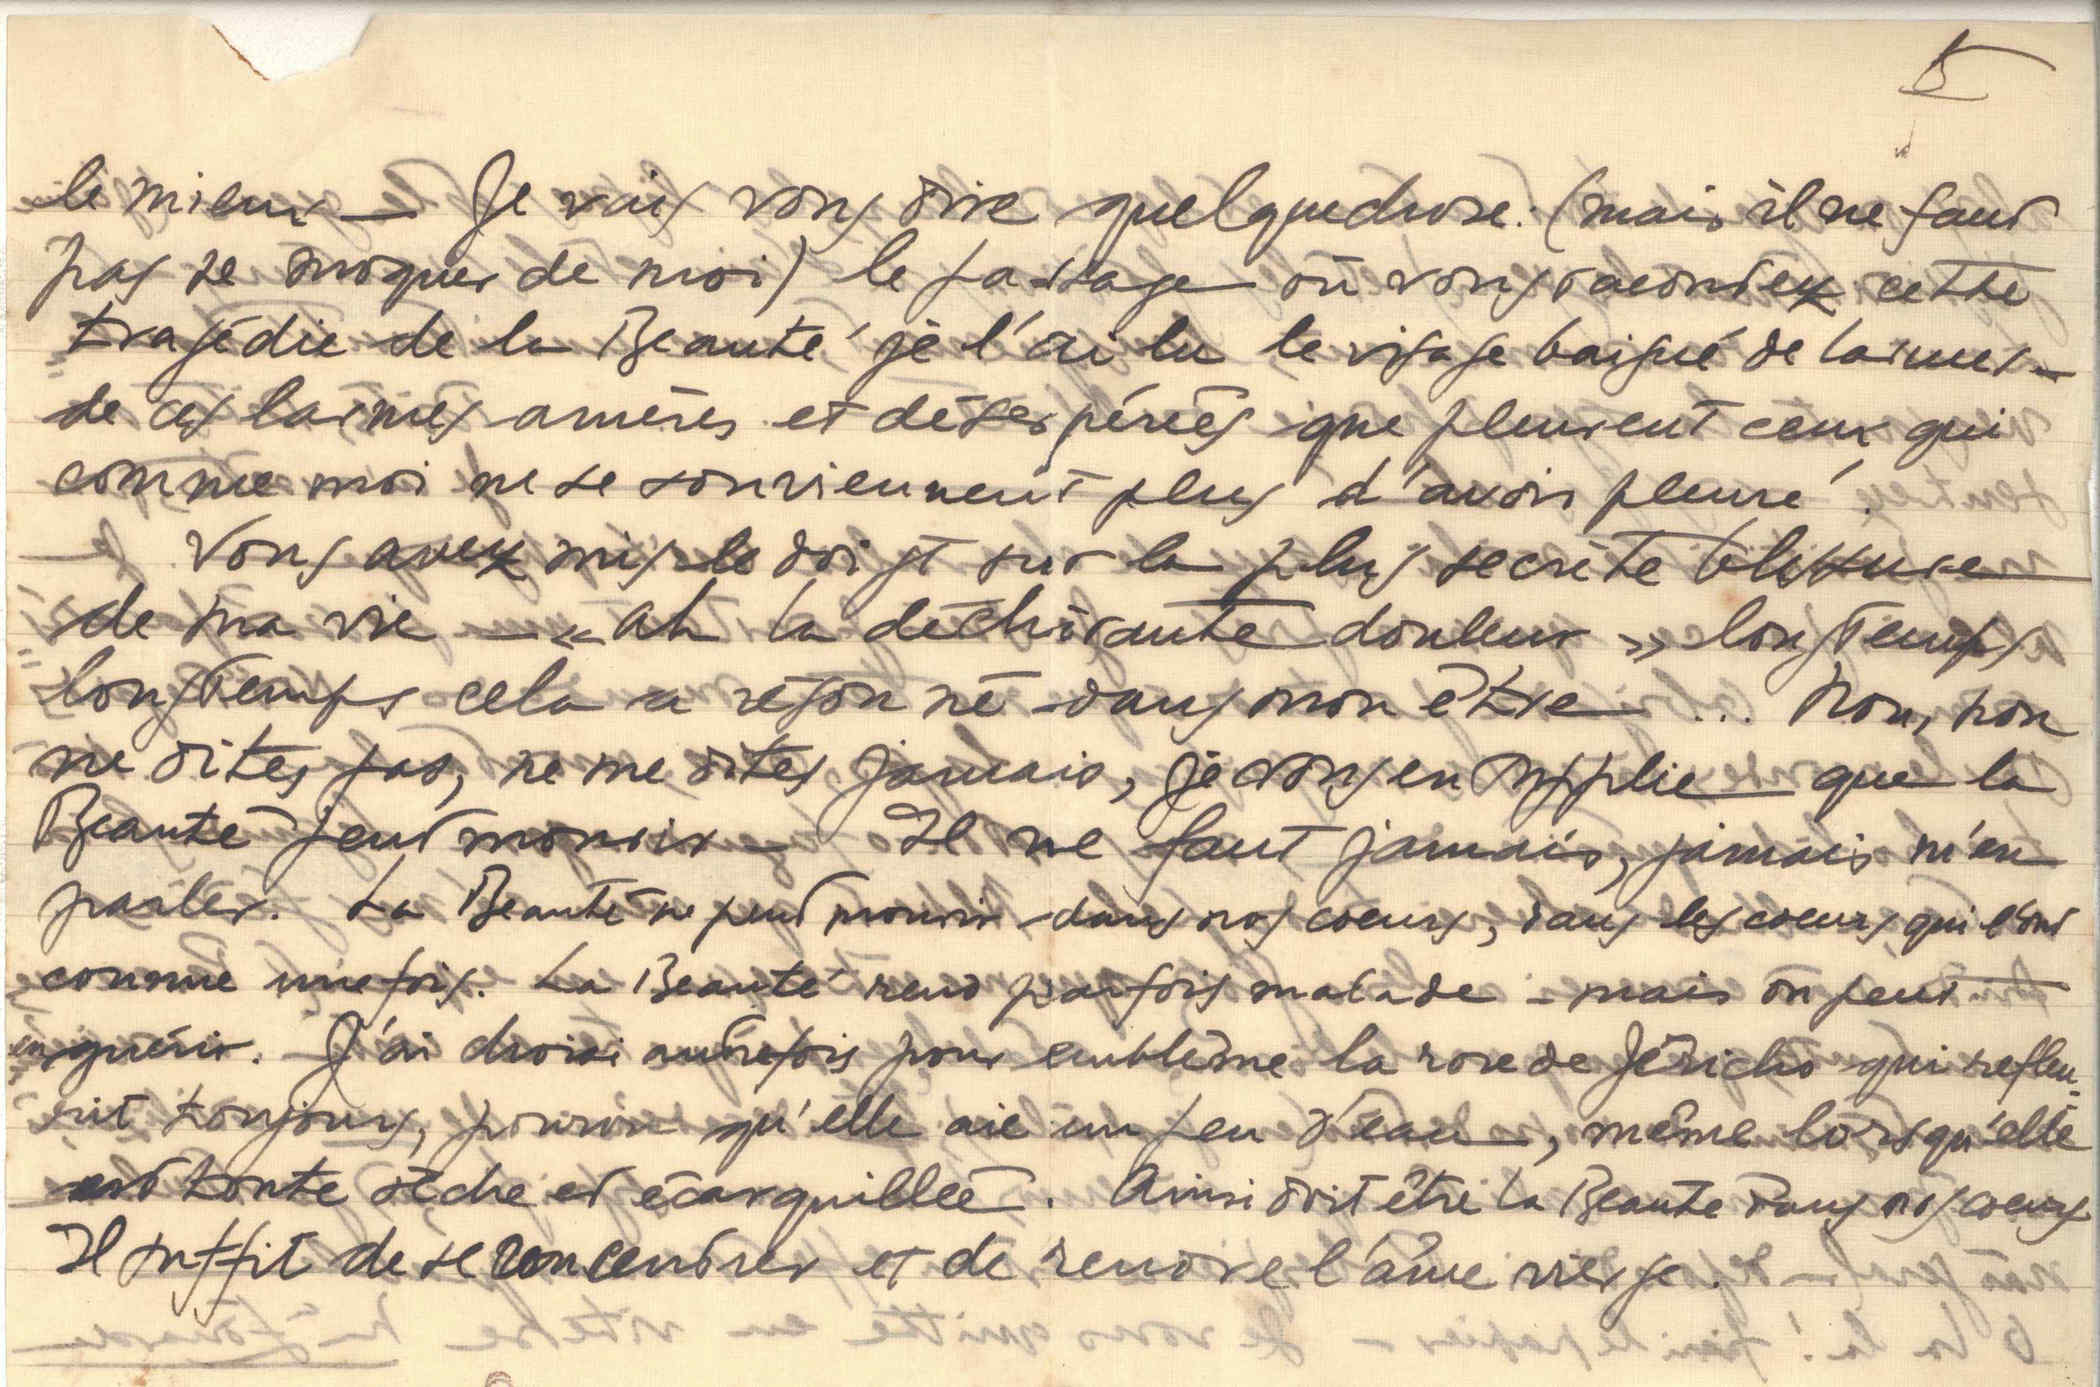 5
le mieux — Je vais vous dire quelquechose : (mais il ne faut
pas se moquer de moi) le passage où vous racontez cette
tragédie de la Beauté je l'ai lu le visage baigné de larmes —
de ces larmes amères et désespérées que pleurent ceux qui
comme moi ne se souviennent plus d'avoir pleuré.
Vous avez mis le doigt sur la plus secrète blessure
de ma vie — « ah la déchirante douleur » longtemps
longtemps cela a résonné dans mon être ... Non, non
ne dites pas, ne me dites jamais, je vous en supplie que la
Beauté peut mourir — Il ne faut jamais, jamais m'en
parler. La Beauté ne peut mourir dans nos coeurs, dans les coeurs qui l'ont
connue une fois. La Beauté rend parfois malade — mais on peut
en guérir. J'ai choisi autrefois pour emblème la rose de Jéricho qui refleu-
rit toujours, pourvu qu'elle aie un peu d'eau, même lorsqu'elle
est toute sèche et écarquillée. Ainsi doit être la Beauté dans nos coeurs
Il suffit de se concentrer et de rendre l'âme vierge.